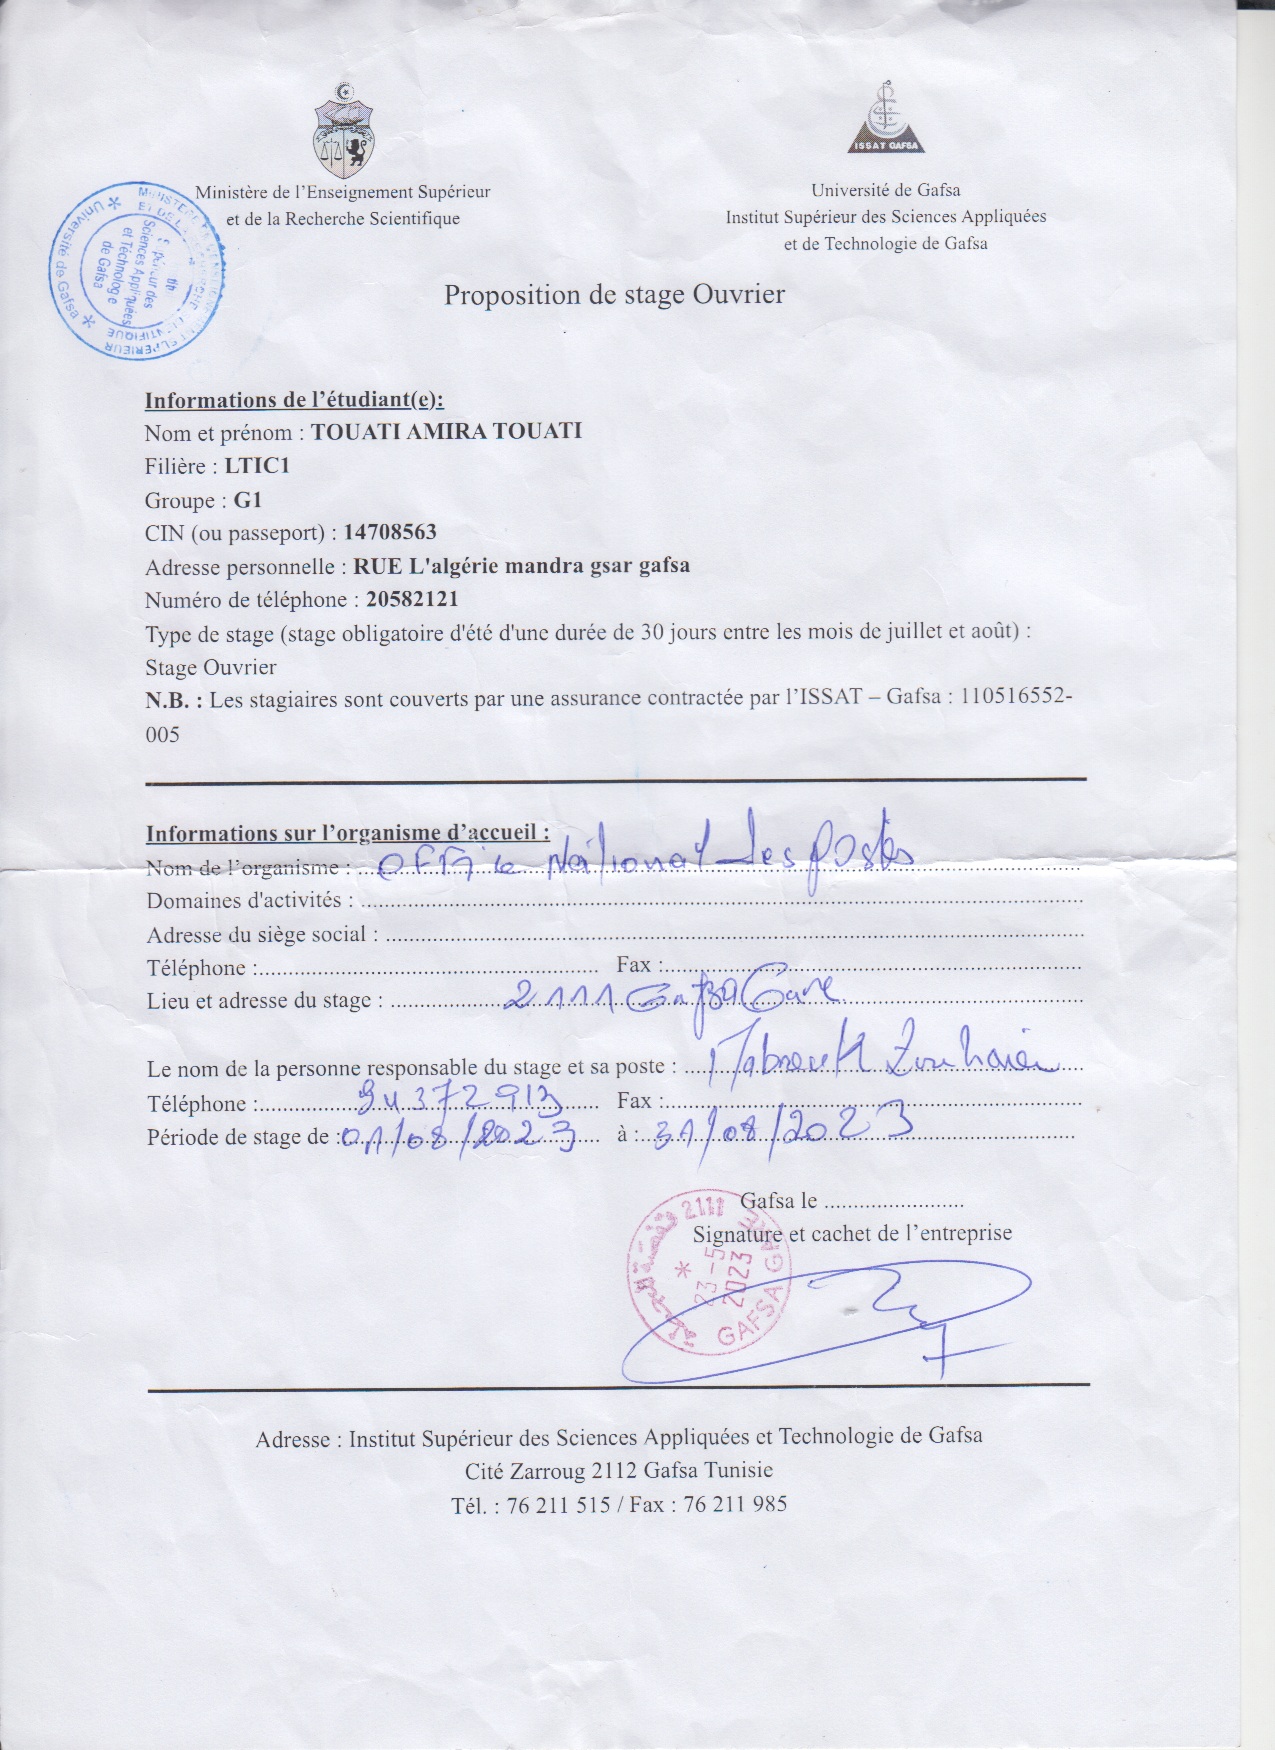 ISSAT GAFSA
Ministère de l'Enseignement Supérieur
et de la Recherche Scientifique
Université de Gafsa
Institut Supérieur des Sciences Appliquées
et de Technologie de Gafsa
Université de Gafsa
Sciences Appliquées
et Technologie
de Gafsa
Proposition de stage Ouvrier
Informations de l'étudiant(e):
Nom et prénom : TOUATI AMIRA TOUATI
Filière : LTIC1
Groupe : G1
CIN (ou passeport) : 14708563
Adresse personnelle : RUE L'algérie mandra gsar gafsa
Numéro de téléphone : 20582121
Type de stage (stage obligatoire d'été d'une durée de 30 jours entre les mois de juillet et août) :
Stage Ouvrier
N.B. : Les stagiaires sont couverts par une assurance contractée par l'ISSAT – Gafsa : 110516552-
005
Informations sur l'organisme d'accueil :
Nom de l'organisme : Office National des postes
Domaines d'activités :
Adresse du siège social :
Téléphone : Fax :
Lieu et adresse du stage : 2111 Gafsa Gare
Le nom de la personne responsable du stage et sa poste : Mabrouk Zouhaier
Téléphone : 94372913 Fax :
Période de stage de : 01/08/2023 à : 31/08/2023
Gafsa le
Signature et cachet de l'entreprise
2111 قفصة
23-5
2023
GAFSA GARE
Adresse : Institut Supérieur des Sciences Appliquées et Technologie de Gafsa
Cité Zarroug 2112 Gafsa Tunisie
Tél. : 76 211 515 / Fax : 76 211 985